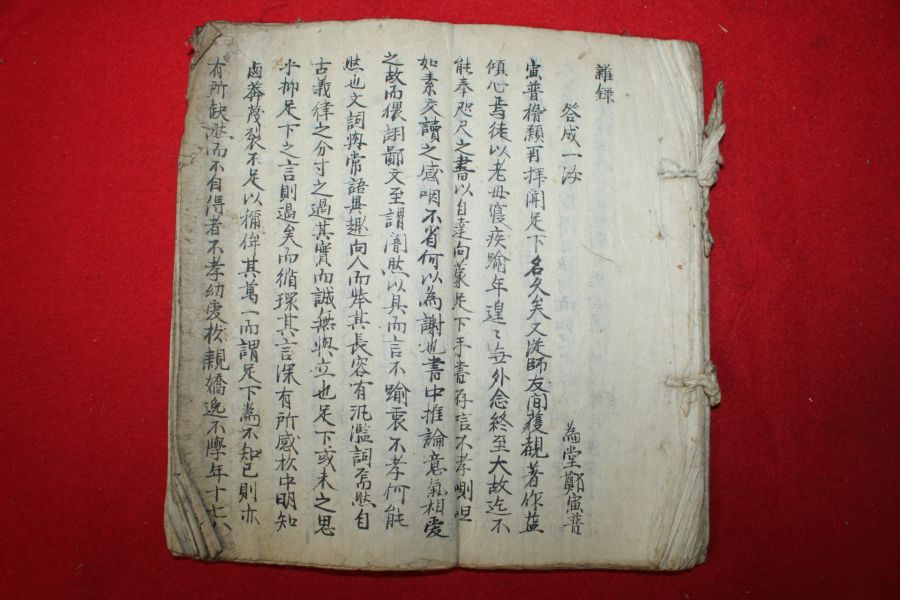 雜錄
答成一汝 為堂鄭寅普
寅普稽顙再拜聞足下名久矣又從師友間獲覩著作益
傾心焉徒以老母寢疾踰年遑〻無外念終至大故迄不
能奉咫尺之書以自達向蒙足下手書存言不孝則但
如素交讀之感咽不省何以為謝也書中推論意氣相愛
之故而猥詡鄙文至謂闇然以具而言不踰衷不孝何能
然也文詞與常語異趣向人而犇其長容有汎濫詞鬲然自
古義律之分寸之過其實而誠無與立也足下或未之思
乎抑足下之言則過矣而循環其言深有所感於中明知
鹵莽蔑裂不足以稱俾其萬一而謂足下為不知己則亦
有所缺然而不自得者不孝幼愛於親嬌逸不學年十七八